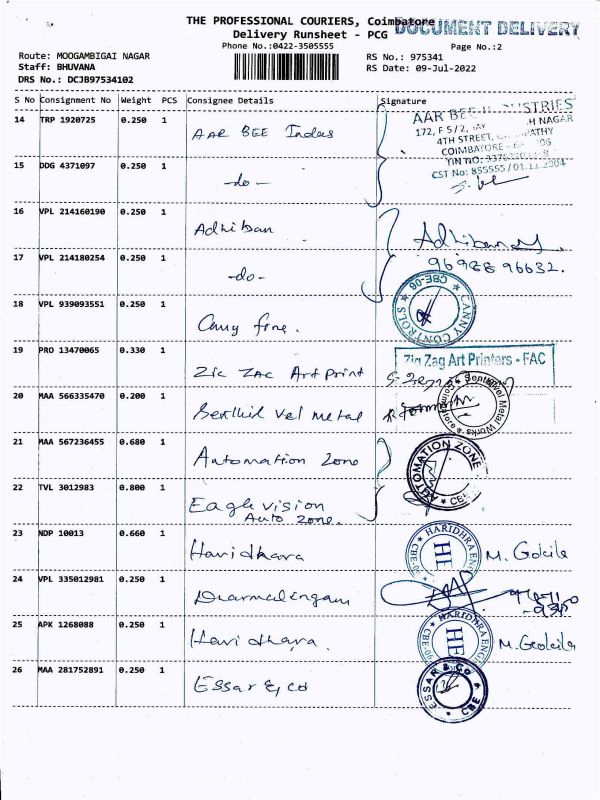 THE PROFESSIONAL COURIERS, Coimbatore
DOCUMENT DELIVERY
Delivery Runsheet - PCG
Phone No.:0422-3505555
Page No.:2
Route: MOOGAMBIGAI NAGAR
RS No.: 975341
Staff: BHUVANA
RS Date: 09-Jul-2022
DRS No.: DCJB97534102
S No Consignment No Weight PCS Consignee Details Signature
14 TRP 1920725 0.250 1 AAR BEE Indus
AAR BEE STRIES
172, F S / 2, H NAGAR
4TH STREET, PATHY
COIMBATORE - 06
TIN NO:
CST No: 855555 / 01.11.2004
15 DDG 4371097 0.250 1 -do-
16 VPL 214160190 0.250 1 Adhiban
17 VPL 214180254 0.250 1 -do-
96988 96632.
18 VPL 939093551 0.250 1 Cany fone.
CANNY CONTROLS CBE-06
19 PRO 13470065 0.330 1 Zic ZAC Art print
Zig Zag Art Printers - FAC
20 MAA 566335470 0.200 1 Senthil vel metal
Senthilvel Metal Works Coimbatore
21 MAA 567236455 0.680 1 Automation Zone
AUTOMATION ZONE CBE
22 TVL 3012983 0.800 1 Eagle vision
Auto zone.
23 NDP 10013 0.660 1 Haridhara
HARIDHRA ENGI CBE-06 HE
M. Gokila
24 VPL 335012981 0.250 1 Dharmalingam
25 APK 1268088 0.250 1 Hari dhara.
HARIDHRA ENGI CBE-06 HE
M. Gokila
26 MAA 281752891 0.250 1 Essar & co
ESSAR & CO CBE